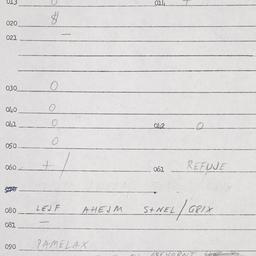 013 0 014 +
020 $
021 —
030 0
040 0
041 0 042 0
050 0
060 + / 061 REFUSE
080 LEJF AHEJM S+NEL/GPIX
081 —
090 PAMELAX